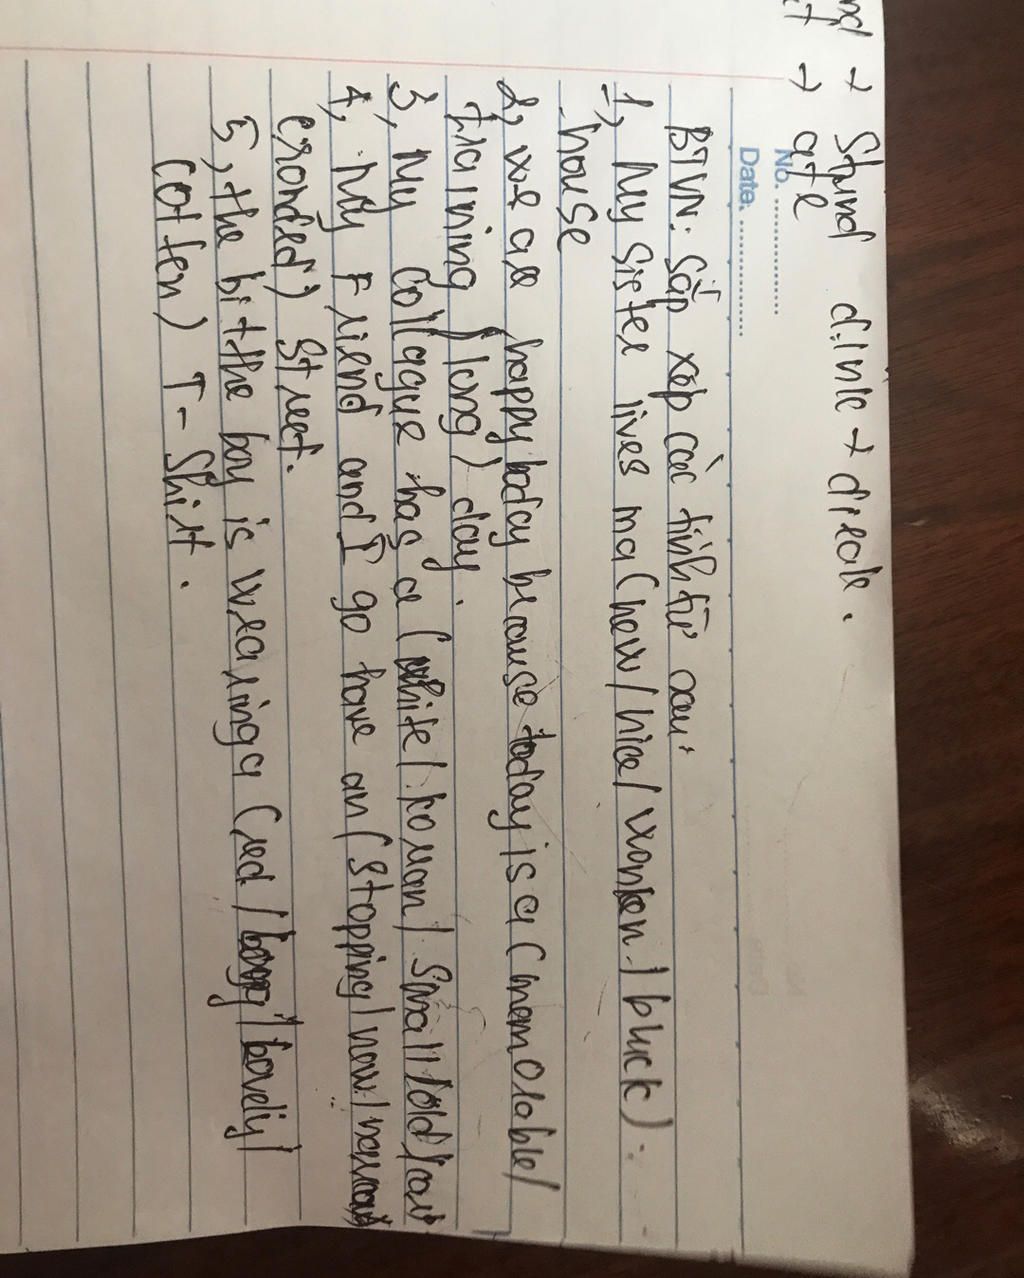 nd → Stand dilnle → dileale.
t → ate
No. ................
Date: ................
BTVN: Sắp xếp các tính từ sau:
1, My Sistel lives ma (new / nice / wonken / bluck).
house
2, we are happy today because today is a (memolable /
training / long) day.
3, My Collague has a (white / koman / Small / old / cau)
4, My Friend and I go have an (Stopping / now / narrow
cronded) Street.
5, the bit the boy is wearing a (red / bagy / lovely /
Cotten) T-Shirt.